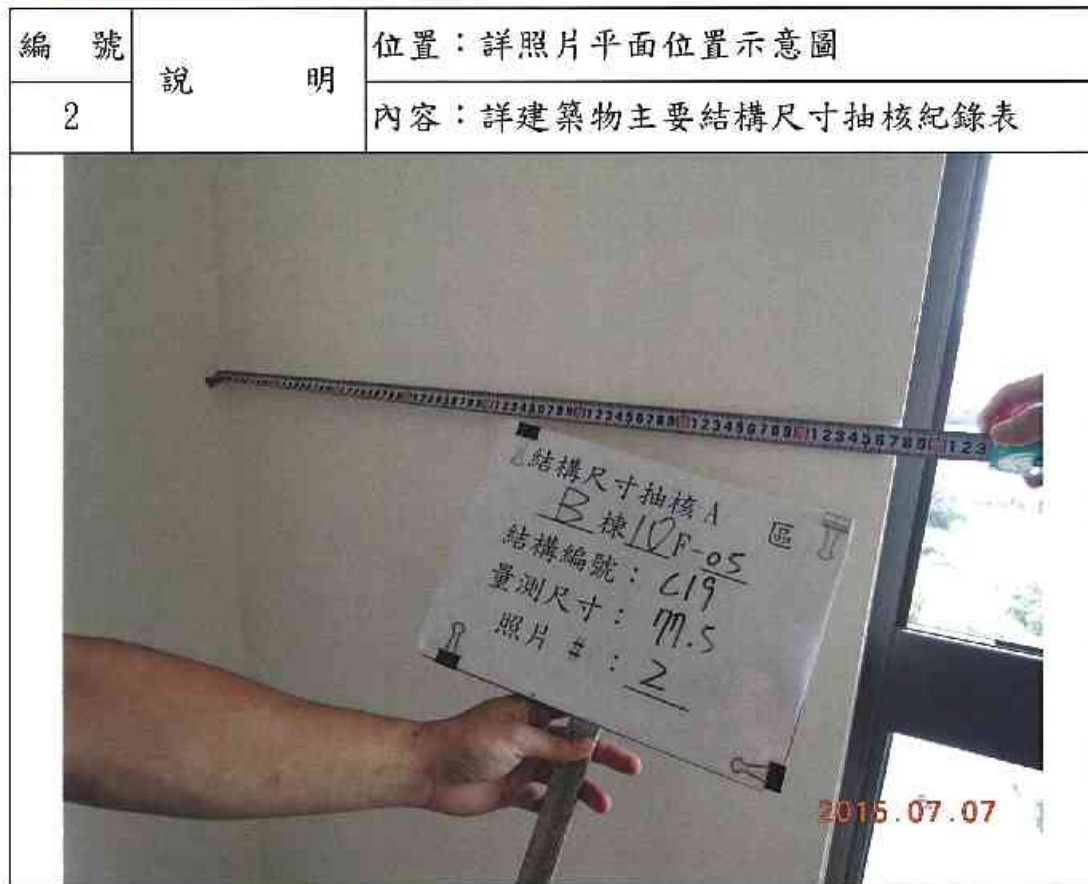 編 號
說 明
位置：詳照片平面位置示意圖
2
內容：詳建築物主要結構尺寸抽核紀錄表
結構尺寸抽核 A 區
B 棟 10 F-05
結構編號：C19
量測尺寸：77.5
照片 #：2
2015.07.07